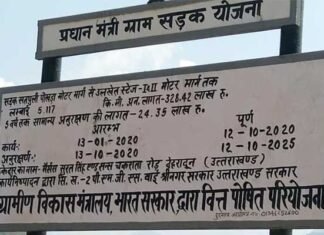 प्रधान मंत्री ग्राम सड़क योजना
सड़क सतपुली मोटर मार्ग से उलखेत स्टेज-I&II मोटर मार्ग तक
लम्बाई 5.117 कि.मी. अनु. लागत-328.42 लाख रु.
5 वर्ष तक सामान्य अनुरक्षण की लागत-24.35 लाख रु.
आरम्भ पूर्ण
कार्य:- 13-01-2020 12-10-2020
अनुरक्षण:- 13-10-2020 12-10-2025
ठेकेदार का नाम- मैसर्स सुरत सिंह चकराता रोड़ देहरादून (उत्तराखण्ड)
कार्य निष्पादन द्वारा सि. ख.-2 पी.एम.जी.एस.वाई श्रीनगर सरकार उत्तराखण्ड सरकार
ग्रामीण विकास मंत्रालय, भारत सरकार द्वारा वित्त पोषित परियोजना